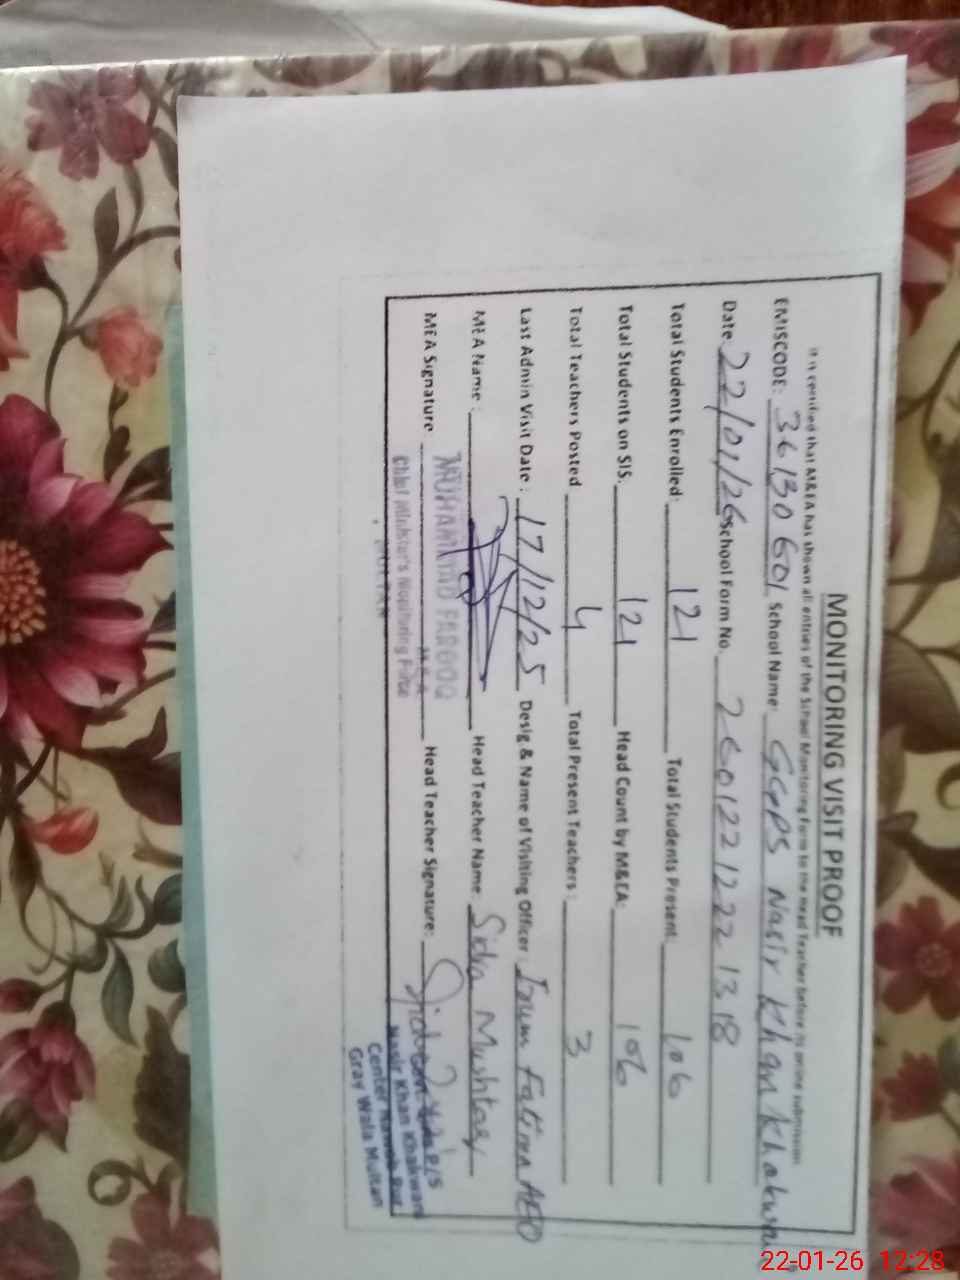 MONITORING VISIT PROOF
It is certified that M&EA has shown all entries of the Monitoring Form to the Head Teacher before its online submission
EMISCODE: 36130601 School Name: GGPS Nasir Khan Khakwani
Date: 22/01/26 School Form No. 2601221222 1318
Total Students Enrolled: 121 Total Students Present 106
Total Students on SIS: 121 Head Count by M&EA: 106
Total Teachers Posted 4 Total Present Teachers: 3
Last Admin Visit Date: 17/12/25 Desig & Name of Visiting Officer Irum Fatima AEO
MEA Name: Head Teacher Name: Sidra Mushtaq
MEA Signature Head Teacher Signature:
MUHAMMAD FAROOQ
M.E.A
Chief Minister's Monitoring Force
MULTAN
Nasir Khan Khakwani
Center Nawab Pur
Gray Wala Multan
22-01-26 12:28